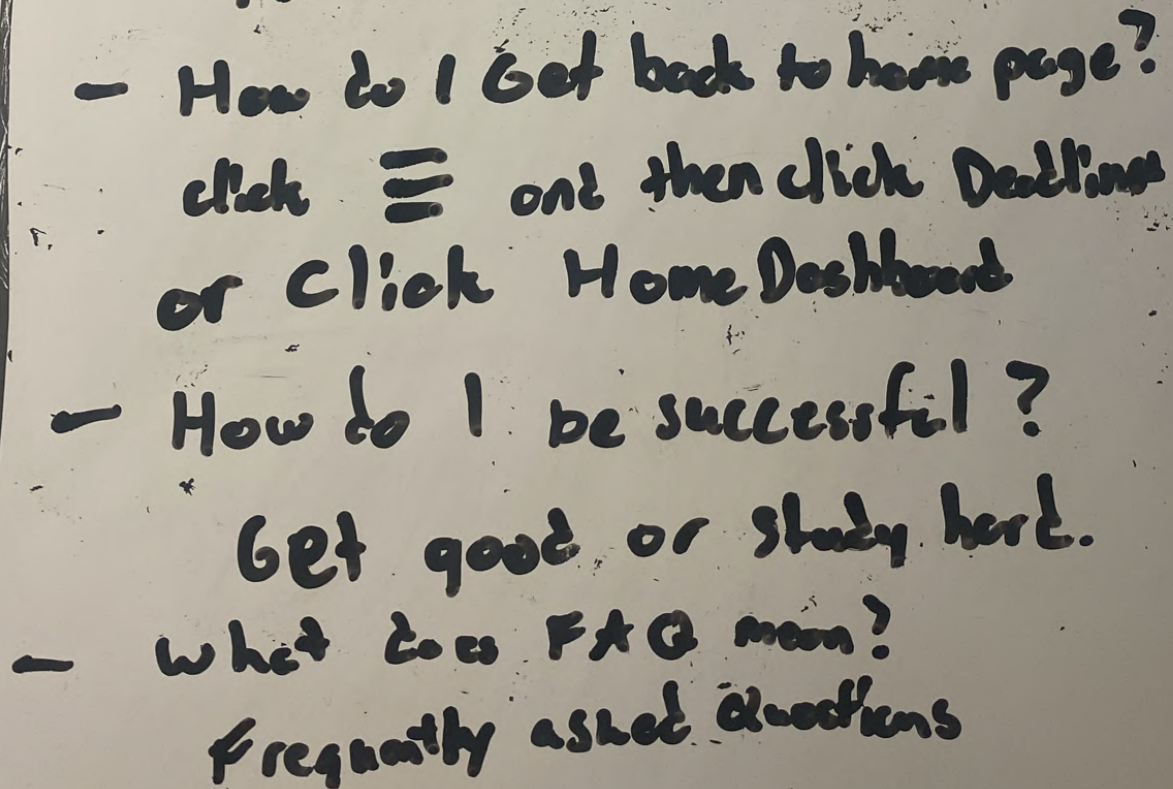 - How do I Get back to home page?
click ☰ and then click Deadlines
or Click Home Dashboard
- How do I be successful?
Get good or study hard.
- What does FAQ mean?
Frequently asked Questions